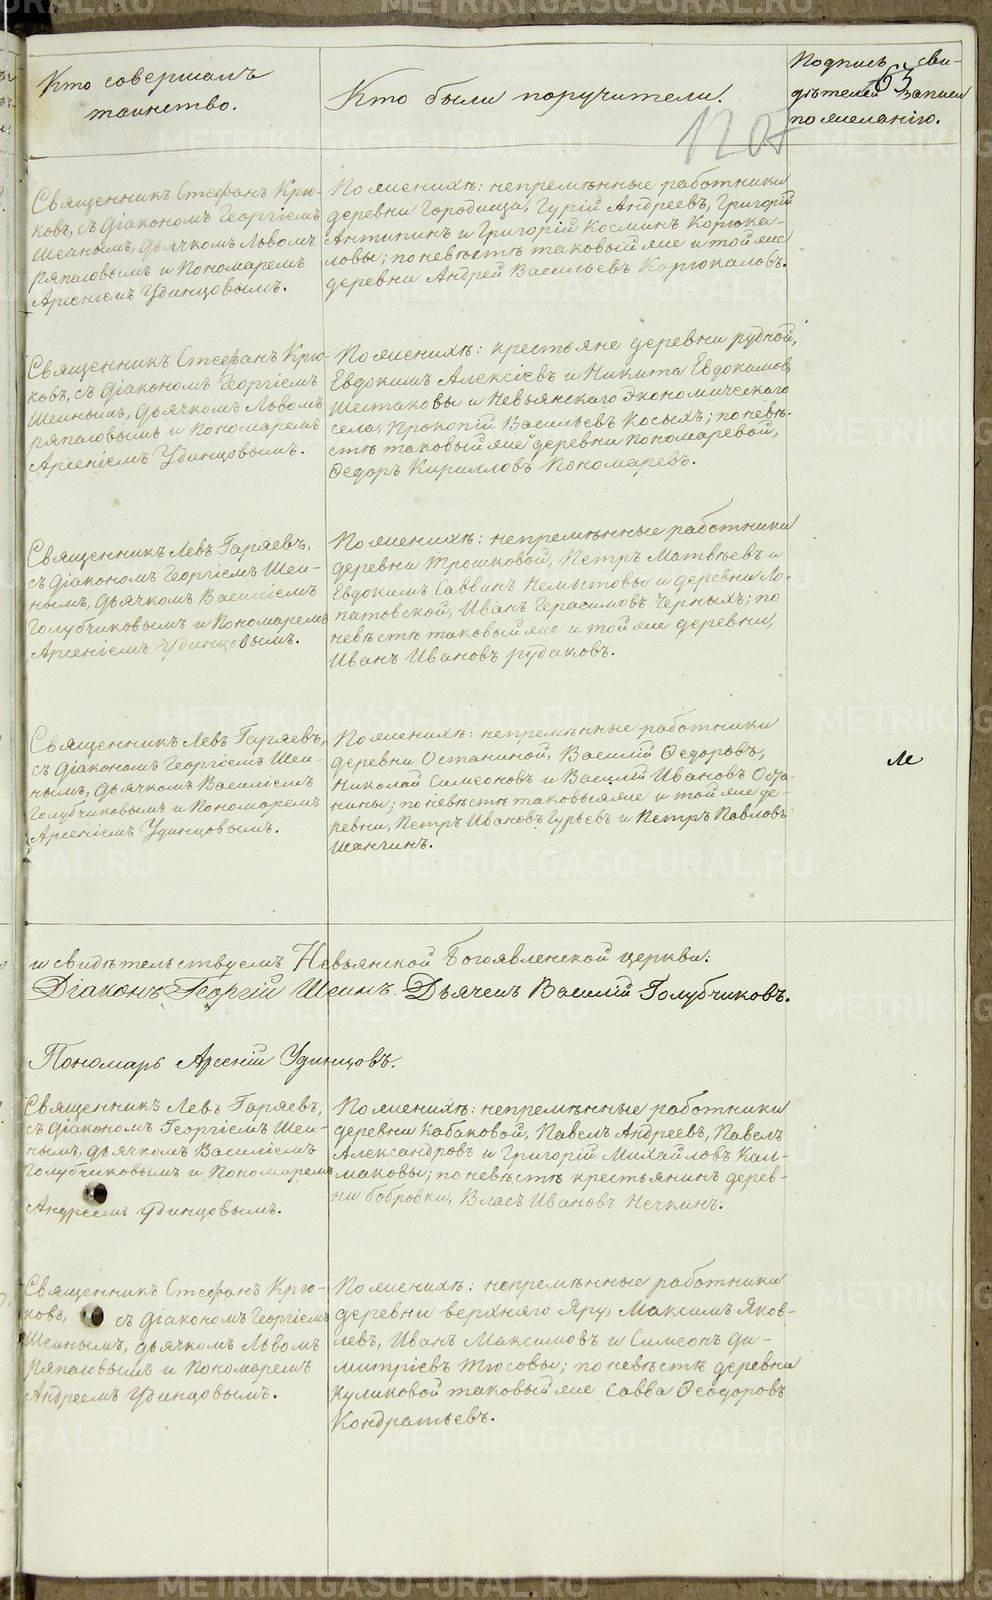 Кто совершалъ
таинство.
Кто были поручители.
Подпись сви-
дѣтелей записи
по желанію.
65
120
Священникъ Стефанъ Крю-
ковъ, съ діакономъ Георгіемъ
Шеинымъ, дьячкомъ Львомъ
Ряпасовымъ и Пономаремъ
Арсеніемъ Удинцовымъ.
По женихѣ: непремѣнные работники
деревни Городища, Гурій Андреевъ, Григорій
Антипинъ и Григорій Косминъ Корюка-
ловы; по невѣстѣ таковый же и той же
деревни Андрей Васильевъ Корюкаловъ.
Священникъ Стефанъ Крю-
ковъ, съ діакономъ Георгіемъ
Шеинымъ, дьячкомъ Львомъ
Ряпасовымъ и Пономаремъ
Арсеніемъ Удинцовымъ.
По женихѣ: крестьяне деревни рудной,
Евдокимъ Алексіевъ и Никита Евдокимовъ
Шестаковы и Невьянскаго Экономическаго
села, Прокопій Васильевъ Косыхъ; по невѣ-
стѣ таковый же деревни пономаревой,
Ѳедоръ Кирилловъ Пономаревъ.
Священникъ Левъ Гаряевъ,
съ діакономъ Георгіемъ Шеи-
нымъ, дьячкомъ Василіемъ
Голубчиковымъ и Пономаремъ
Арсеніемъ Удинцовымъ.
По женихѣ: непремѣнные работники
деревни Трошковой, Петръ Матвѣевъ и
Евдокимъ Саввинъ Немытовы и деревни Ло-
патовской, Иванъ Герасимовъ Черныхъ; по
невѣстѣ таковый же и той же деревни,
Иванъ Ивановъ рудаковъ.
Священникъ Левъ Гаряевъ,
съ діакономъ Георгіемъ Шеи-
нымъ, дьячкомъ Василіемъ
Голубчиковымъ и Пономаремъ
Арсеніемъ Удинцовымъ.
По женихѣ: непремѣнные работники
деревни Останиной, Василій Ѳедоровъ,
Николай Симеоновъ и Василій Ивановъ Оста-
нины; по невѣстѣ таковые же и той же де-
ревни, Петръ Ивановъ Гурьевъ и Петръ Павловъ
Шанчинъ.
и свидѣтельствуемъ Невьянской Богоявленской церкви:
Діаконъ Георгій Шеинъ. Дьячекъ Василій Голубчиковъ.
Пономарь Арсеній Удинцовъ.
Священникъ Левъ Гаряевъ,
съ діакономъ Георгіемъ Шеи-
нымъ, дьячкомъ Василіемъ
Голубчиковымъ и Пономаремъ
Андреемъ Удинцовымъ.
По женихѣ: непремѣнные работники
деревни Кабаковой, Павелъ Андреевъ, Павелъ
Александровъ и Григорій Михайловъ Кал-
маковы; по невѣстѣ крестьянинъ дерев-
ни бобровки, Власъ Ивановъ Нечкинъ.
Священникъ Стефанъ Крю-
ковъ, съ діакономъ Георгіемъ
Шеинымъ, дьячкомъ Львомъ
Ряпасовымъ и Пономаремъ
Андреемъ Удинцовымъ.
По женихѣ: непремѣнные работники
деревни верхняго Яру, Максимъ Яков-
левъ, Иванъ Максимовъ и Симеонъ Ди-
митріевъ Тюсовы; по невѣстѣ деревни
Куликовой таковый же Савва Ѳеодоровъ
Кондратьевъ.
METRIKI.GASO-URAL.RU